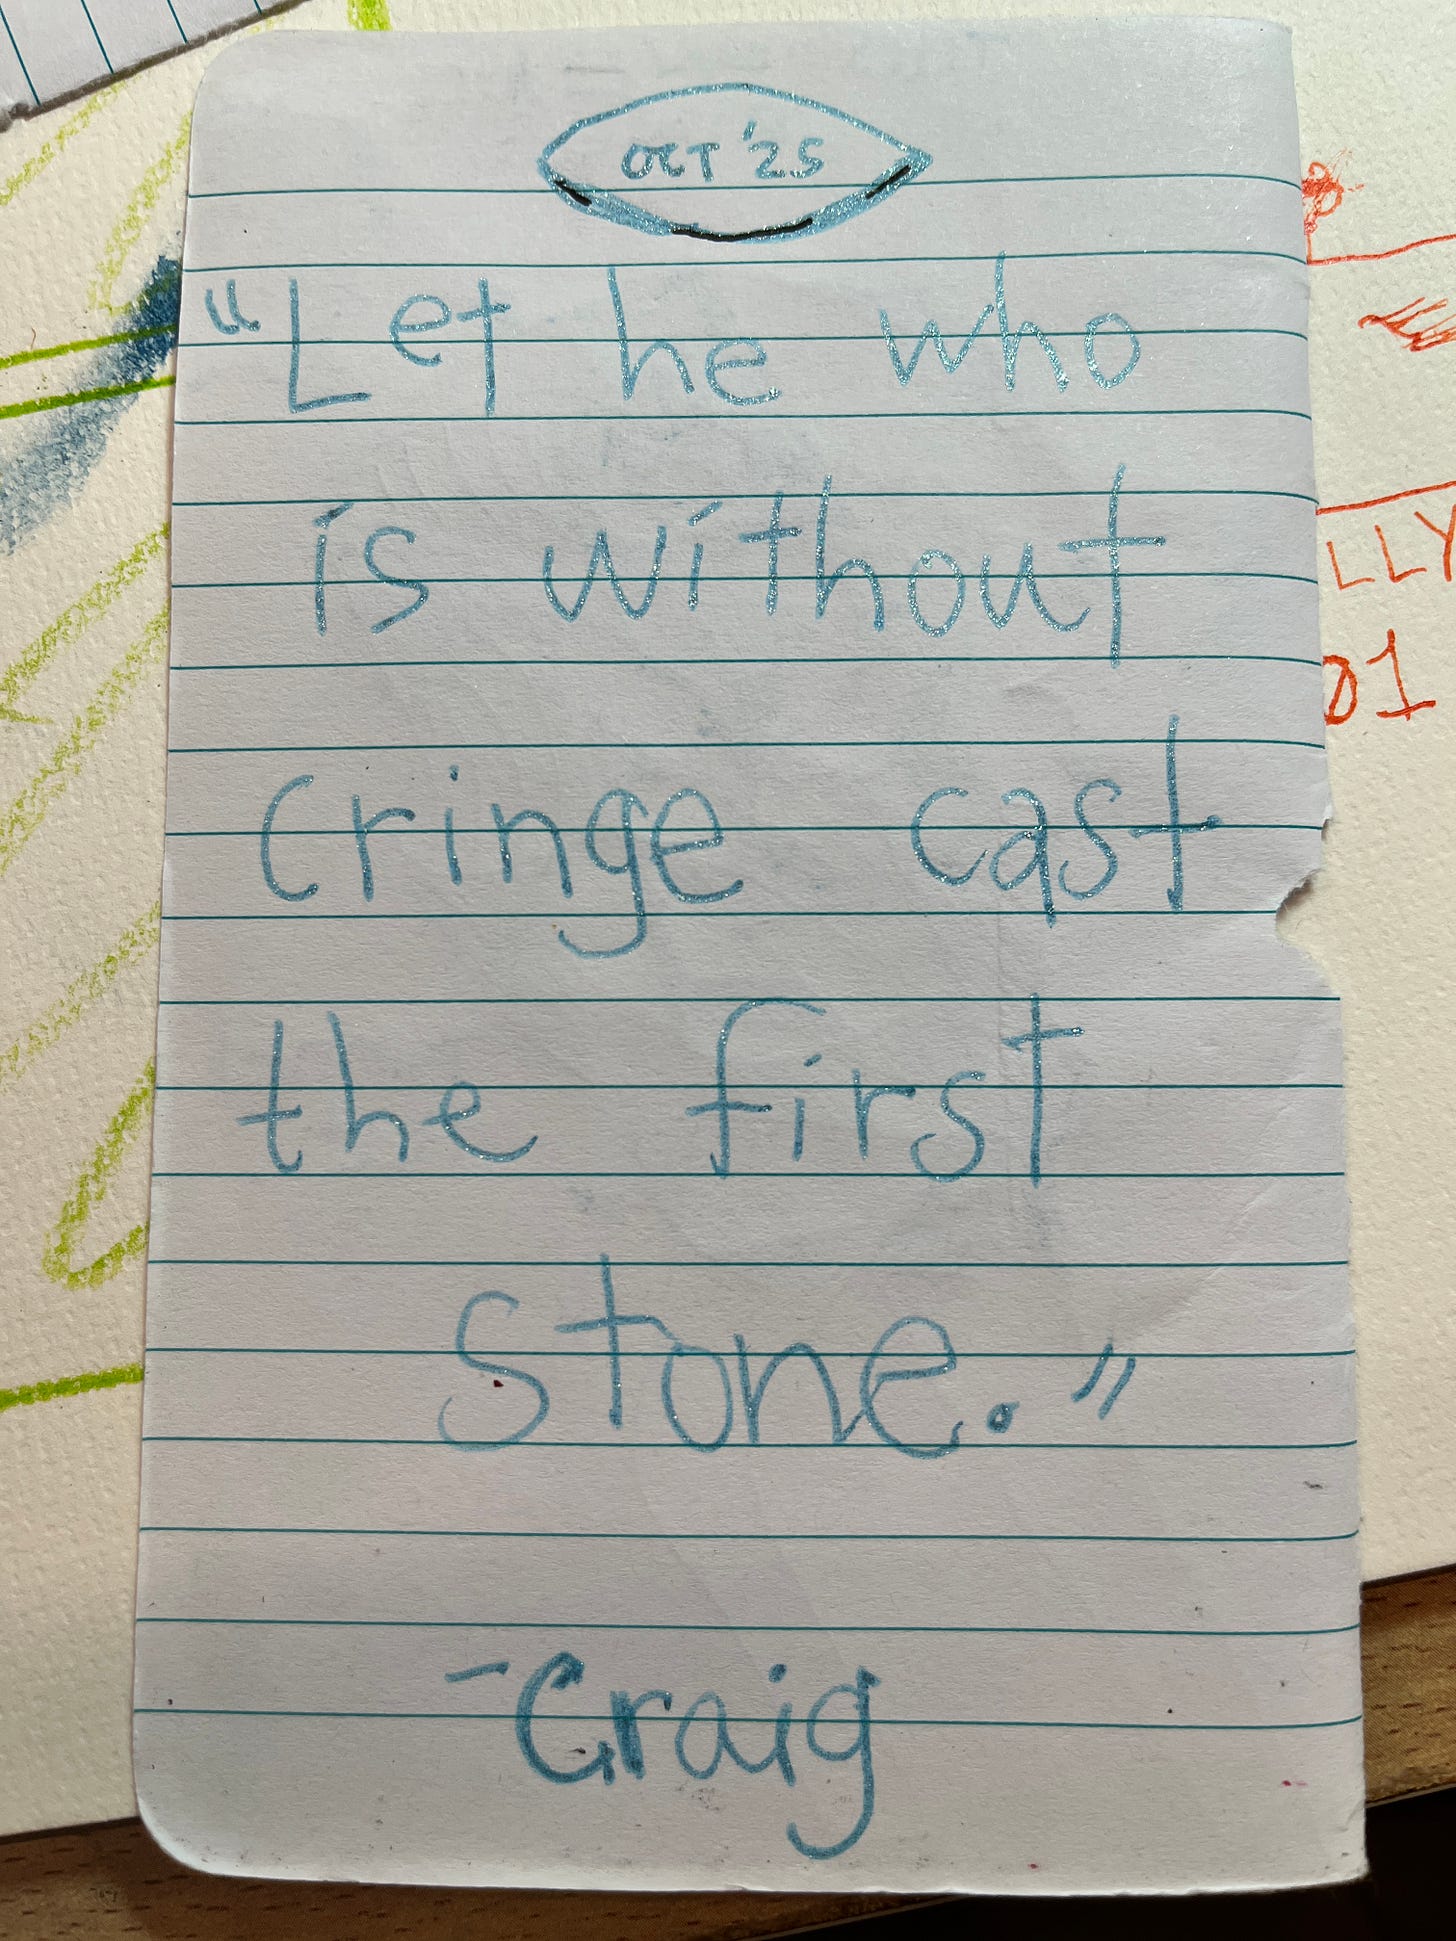 OCT '25
"Let he who
is without
cringe cast
the first
stone."
-Craig
LLY
01